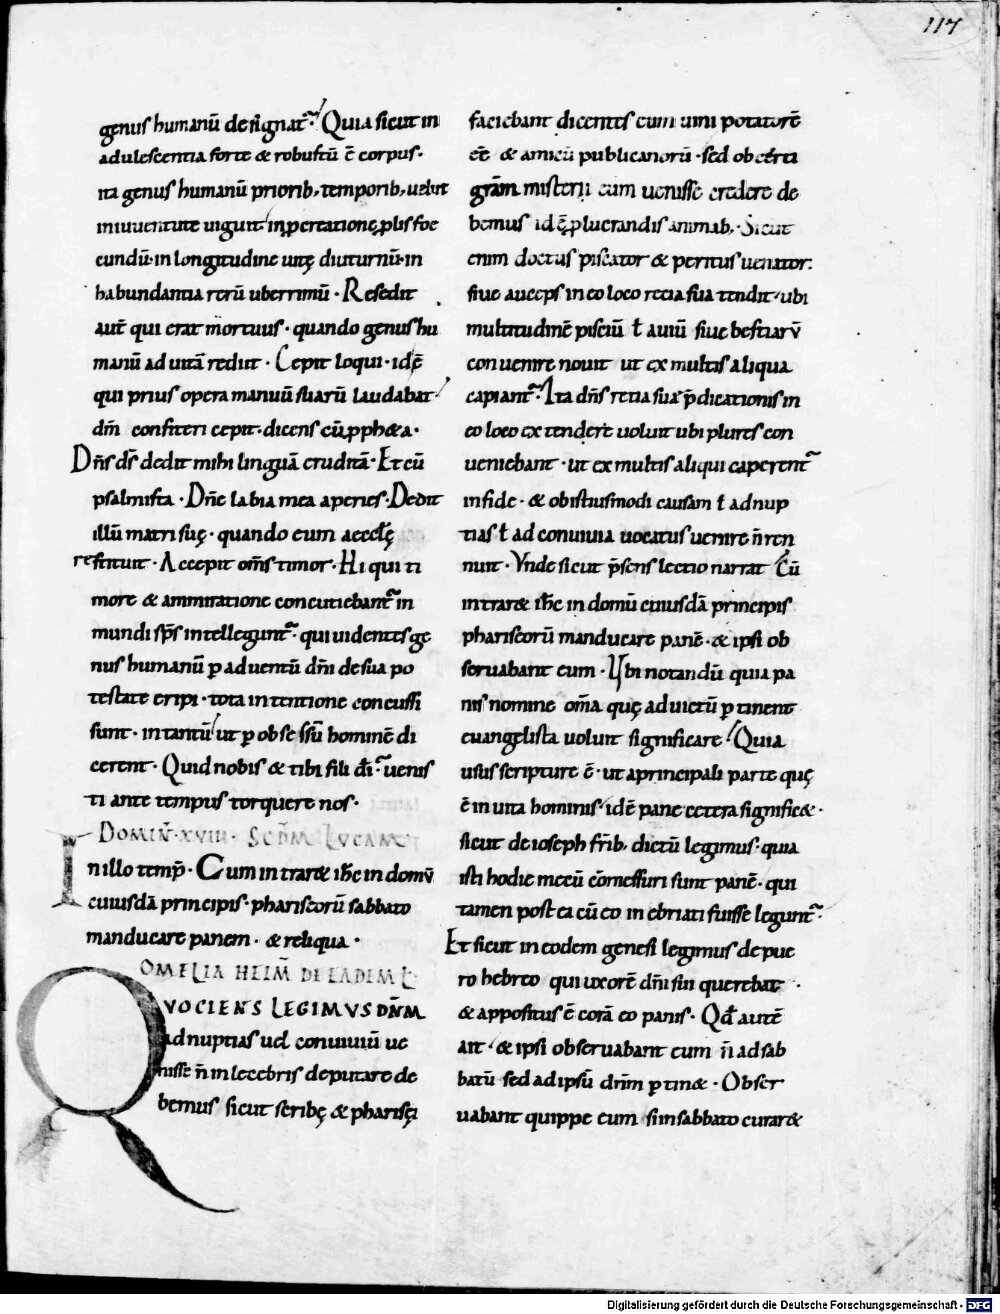 117
genus humanū designat᷑. Quia sicut in
adulescentia forte & robustū ē corpus.
ita genus humanū priorib; temporib; uelut
in iuuentute uiguit. in ꝓcreatione ꝓlis foe
cundū. in longitudine uitę diuturnū. in
habundantia rerū uberrimū. Resedit
aut̄ qui erat mortuus. quando genus hu
manū ad uitā rediit. Cepit loqui. id ē
qui prius opera manuū suarū laudabat.
dm̄ confiteri cepit. dicens cū ꝓph&a.
Dn̄s ds̄ dedit mihi linguā eruditā. Et cū
psalmista. Dn̄e labia mea aperies. Dedit
illū matri suę. quando eum aeccłę
restituit. Accepit om̄s timor. Hi qui ti
more & ammiratione concutiebant᷑ in
mundi sp̄s intellegunt᷑. qui uidentes ge
nus humanū ꝑ aduentū dn̄i de sua po
testate eripi. tota intentione concussi
sunt. in tantū ut ꝑ obsessū hominē di
cerent. Quid nobis & tibi fili di᷑. uenis
ti ante tempus torquere nos.
DOMIN̄. XVIII. SCDM̄ LVCAM
In illo temp̄. Cum intrar& ih̄c in domū
cuiusdā principis. phariseorū sabbato
manducare panem. & reliqua.
OMELIA HEIM̄ DE EADEM Ł
QVOCIENS LEGIMVS DN̄M
ad nuptias uel conuiuiū ue
nisse n̄ inlecebris deputare de
bemus sicut scribę & pharisęi
faciebant dicentes eum uini potatorē
eē & amicū publicanorū. sed ob certi
gram̄ misterii eum uenisse credere de
bemus id ē ꝓ lucrandis animab;. Sicut
enim doctus piscator & peritus uenator.
siue auceps in eo loco recia sua tendit. ubi
multitudinē pisciū ł auiū siue bestiarū
conuenire nouit ut ex multis aliqua
capiant᷑. Ita dn̄s retia suę p̄dicationis in
eo loco extendere uoluit ubi plures con
ueniebant. ut ex multis aliqui caperent᷑
in fide. & ob istiusmodi causam ł ad nup
tias ł ad conuiuia uocatus uenire n̄ ren
nuit. Vnde sicut p̄sens lectio narrat Cū
intrar& ih̄c in domū cuiusdā principis
phariseorū manducare panē. & ipsi ob
seruabant eum. Vbi notandū quia pa
nis nomine om̄a quę ad uictū ꝑtinent
euangelista uoluit significare. Quia
usus scripture ē. ut a principali parte quę
ē in uita hominis. id ē pane cetera signific&.
sicut de ioseph fr̄ib; dictū legimus. quia
isti hodie mecū cōmessuri sunt panē. qui
tamen postea cū eo inebriati fuisse legunt᷑.
Et sicut in eodem genesi legimus de pue
ro hebreo qui uxorē dn̄i sin querebat.
& appositus ē corā eo panis. Qđ autē
ait. & ipsi obseruabant eum n̄ ad sab
batū sed ad ipsū dnm̄ ꝑtin&. Obser
uabant quippe eum si in sabbato curar&
Digitalisierung gefördert durch die Deutsche Forschungsgemeinschaft - DFG